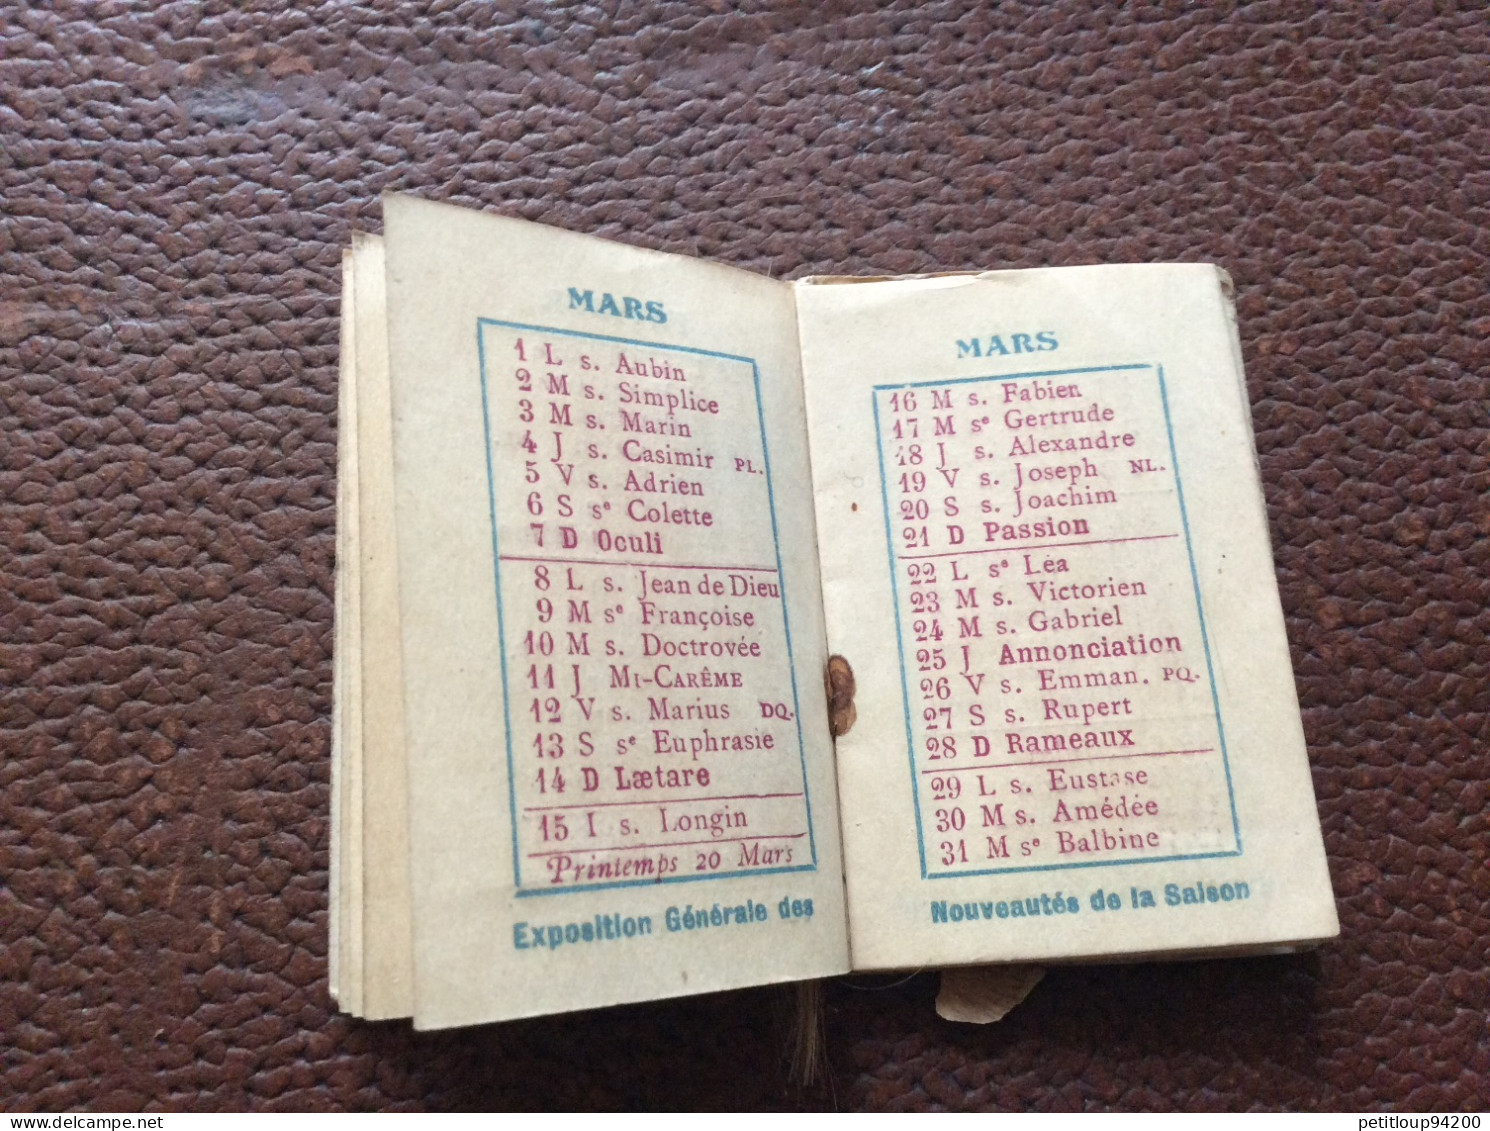 MARS
1 L s. Aubin
2 M s. Simplice
3 M s. Marin
4 J s. Casimir PL.
5 V s. Adrien
6 S se Colette
7 D Oculi
8 L s. Jean de Dieu
9 M se Françoise
10 M s. Doctrovée
11 J MI-CARÊME
12 V s. Marius DQ.
13 S se Euphrasie
14 D Lætare
15 L s. Longin
Printemps 20 Mars
Exposition Générale des
MARS
16 M s. Fabien
17 M se Gertrude
18 J s. Alexandre
19 V s. Joseph NL.
20 S s. Joachim
21 D Passion
22 L se Léa
23 M s. Victorien
24 M s. Gabriel
25 J Annonciation
26 V s. Emman. PQ.
27 S s. Rupert
28 D Rameaux
29 L s. Eustase
30 M s. Amédée
31 M se Balbine
Nouveautés de la Saison
petitloup94200